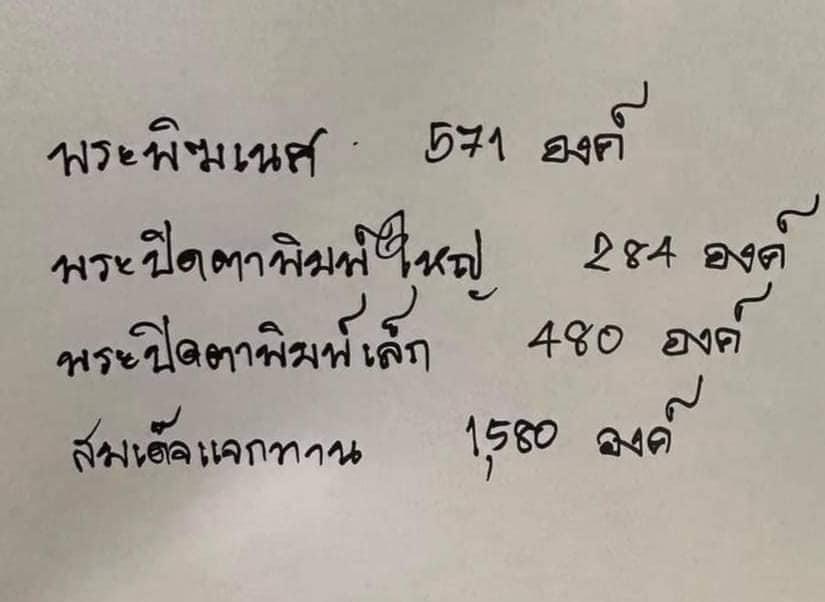 พระพิฆเนศ 571 องค์
พระปิดตาพิมพ์ใหญ่ 284 องค์
พระปิดตาพิมพ์เล็ก 480 องค์
สมเด็จแจกทาน 1,580 องค์